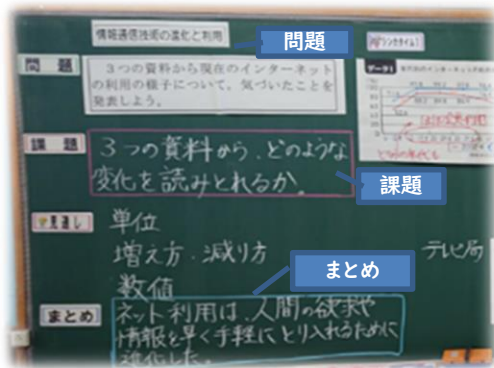 情報通信技術の進化と利用
問題
問題
3つの資料から現在のインターネット
の利用の様子について、気づいたことを
発表しよう。
課題
3つの資料から、どのような
変化を読みとれるか。
課題
見通し
単位
増え方・減り方
テレビ局
数値
まとめ
まとめ
ネット利用は、人間の欲求や
情報を早く手軽にとり入れるために
進化した。